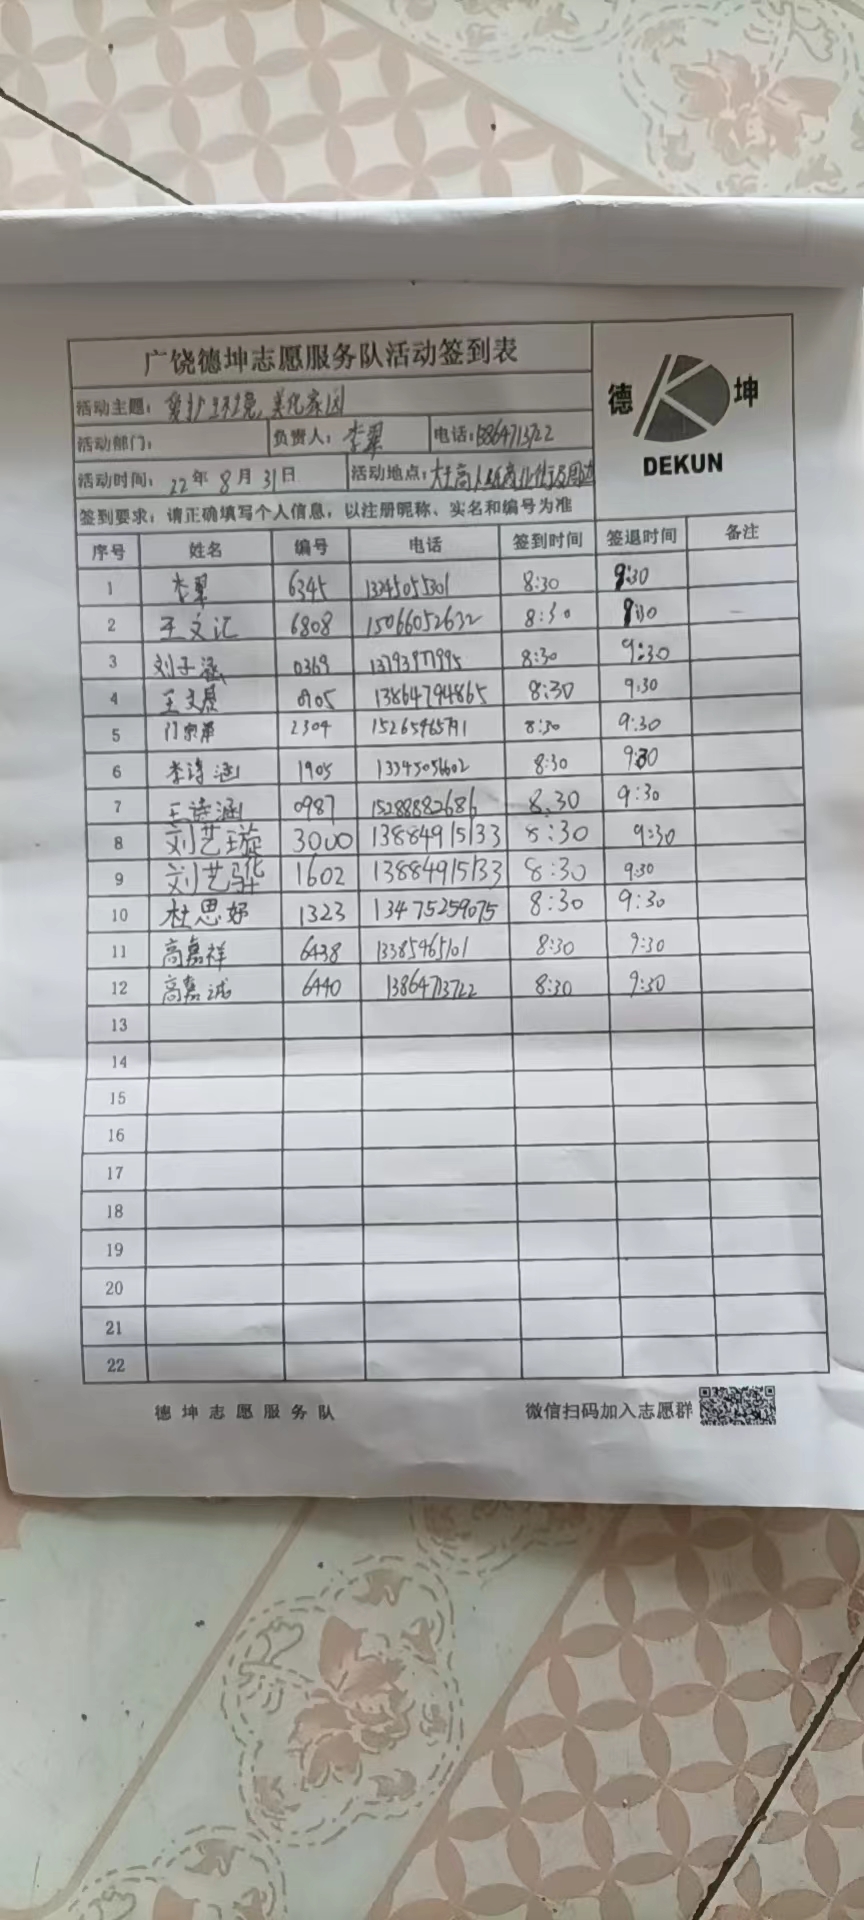 广饶德坤志愿服务队活动签到表
德 坤
DEKUN
活动主题: 爱护环境,美化家园
活动部门: 负责人: 李翠 电话: 13864713722
活动时间: 22年8月31日 活动地点:
签到要求: 请正确填写个人信息, 以注册昵称、实名和编号为准
序号 姓名 编号 电话 签到时间 签退时间 备注
1 李翠 6345 13345055301 8:30 9:30
2 王文汇 6808 15066052632 8:30 9:30
3 刘子涵 0369 13793977995 8:30 9:30
4 王文晨 0905 13864794865 8:30 9:30
5 2304 8:30 9:30
6 李诗涵 1905 8:30 9:30
7 王诗涵 0987 15288882686 8:30 9:30
8 刘艺璇 3000 13884915133 8:30 9:30
9 刘艺骅 1602 13884915133 8:30 9:30
10 杜思妤 1323 13475259075 8:30 9:30
11 高嘉祥 6438 13385465101 8:30 9:30
12 高嘉诚 6440 13864713722 8:30 9:30
13
14
15
16
17
18
19
20
21
22
德坤志愿服务队 微信扫码加入志愿群